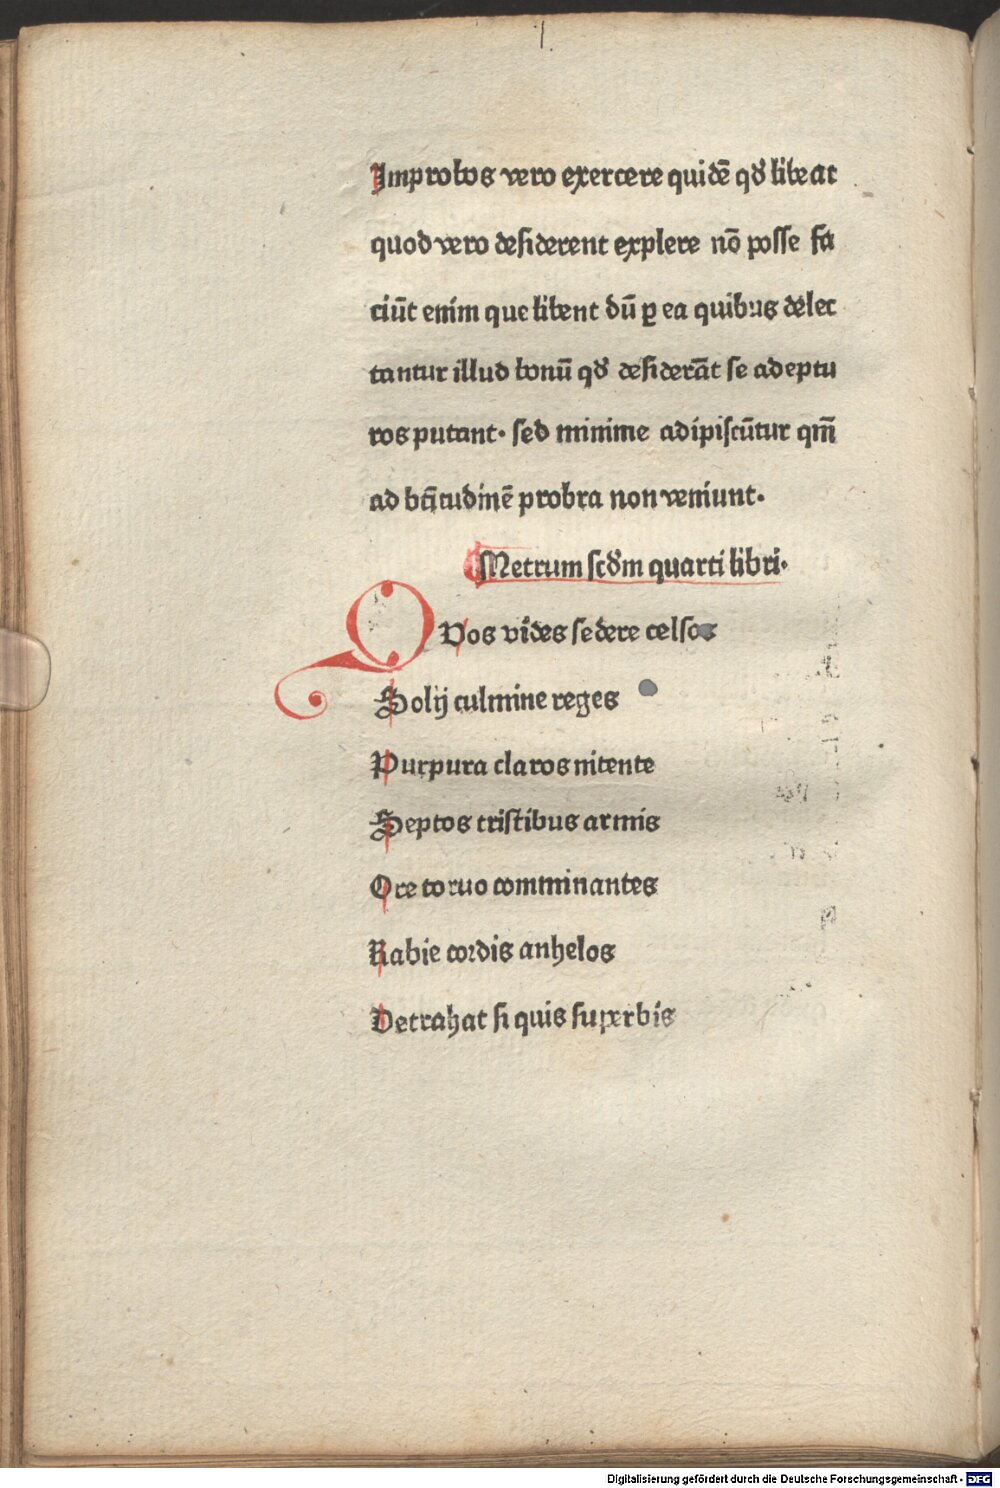 Improbos vero exercere quidē qd' libeat
quod vero desiderent explere nō posse fa
ciūt enim que libent dū ꝑ ea quibus delec
tantur illud bonū qd' desiderāt se adeptu
ros putant· sed minime adipiscūtur qm̄
ad btītudinē probra non veniunt·
Metrum scd'm quarti libri·
QVos vides sedere celsos
Solij culmine reges
Purpura claros nitente
Septos tristibus armis
Ore toruo comminantes
Rabie cordis anhelos
Detrahat si quis superbis
Digitalisierung gefördert durch die Deutsche Forschungsgemeinschaft - DFG